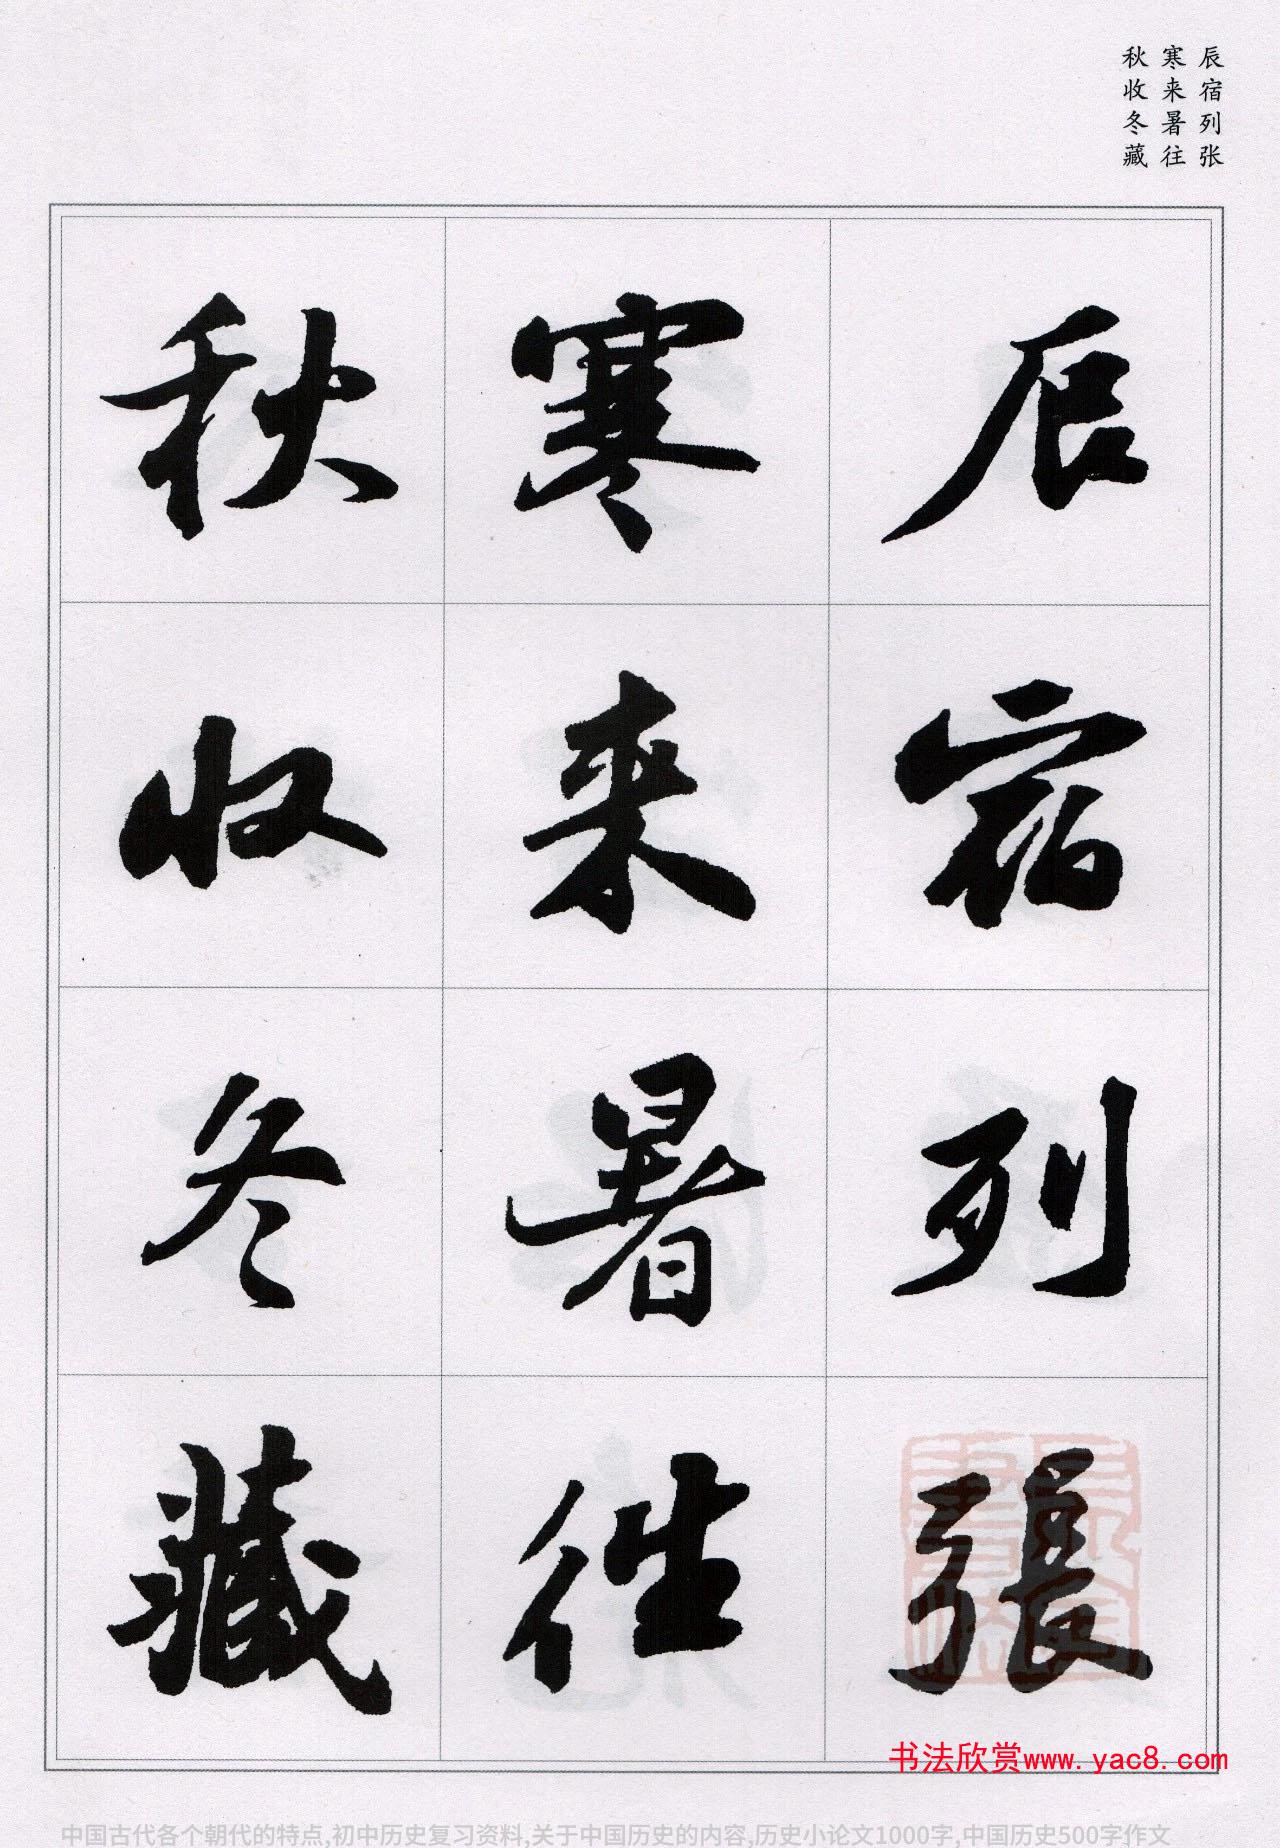 辰宿列张
寒来暑往
秋收冬藏
辰宿列張
寒来暑往
秋收冬藏
书法欣赏www.yac8.com
中国古代各个朝代的特点,初中历史复习资料,关于中国历史的内容,历史小论文1000字,中国历史500字作文